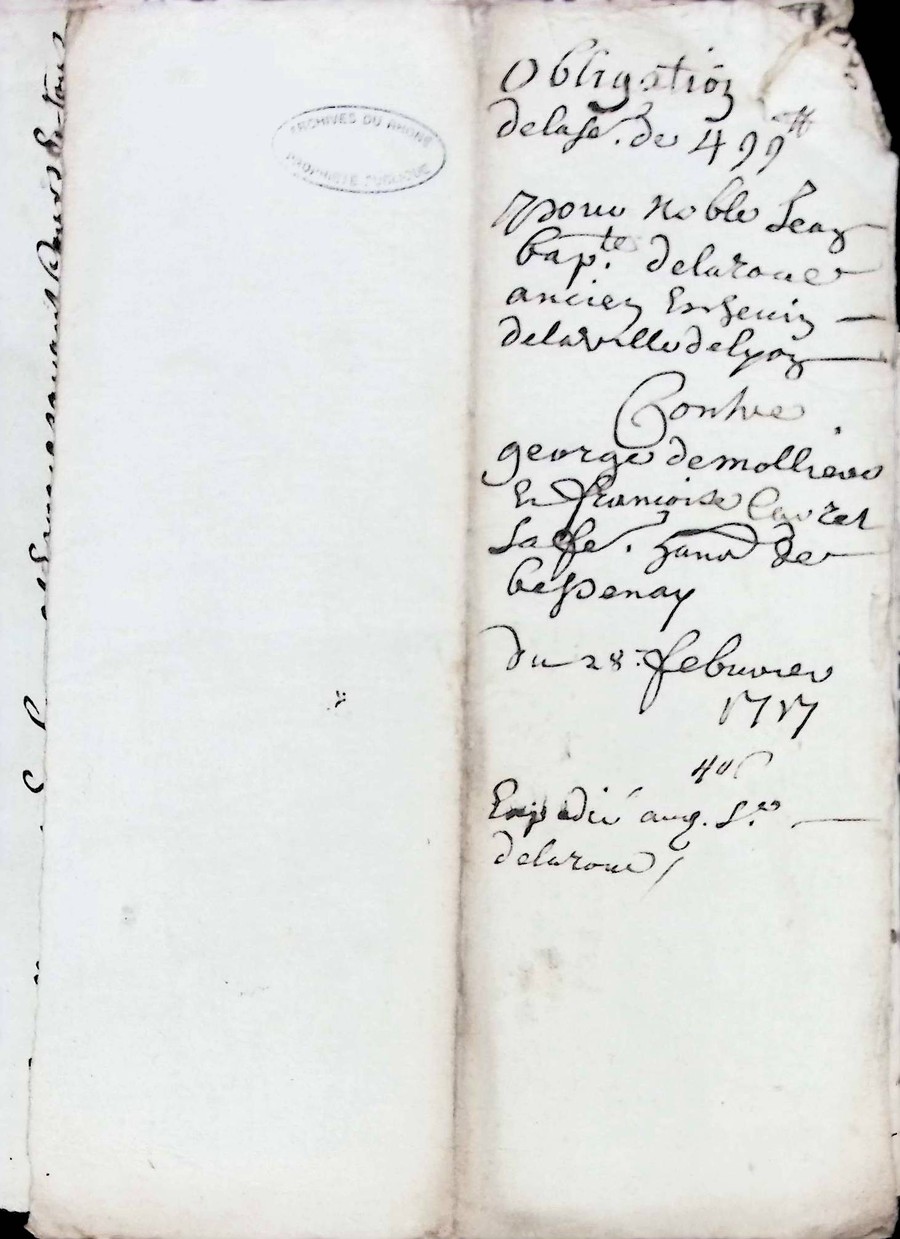 ARCHIVES DU RHONE
PROPRIETE PUBLIQUE
Obligation
dela so.e de 499 ₶
pour noble Jean
bap.te delaroue
ancien Eschevin
delaville delyon
Contre
george demolliere
Et françoise
sa fe. de
bessenay
du 28.e febvrier
1717
Expedié aud. s.r
delaroue